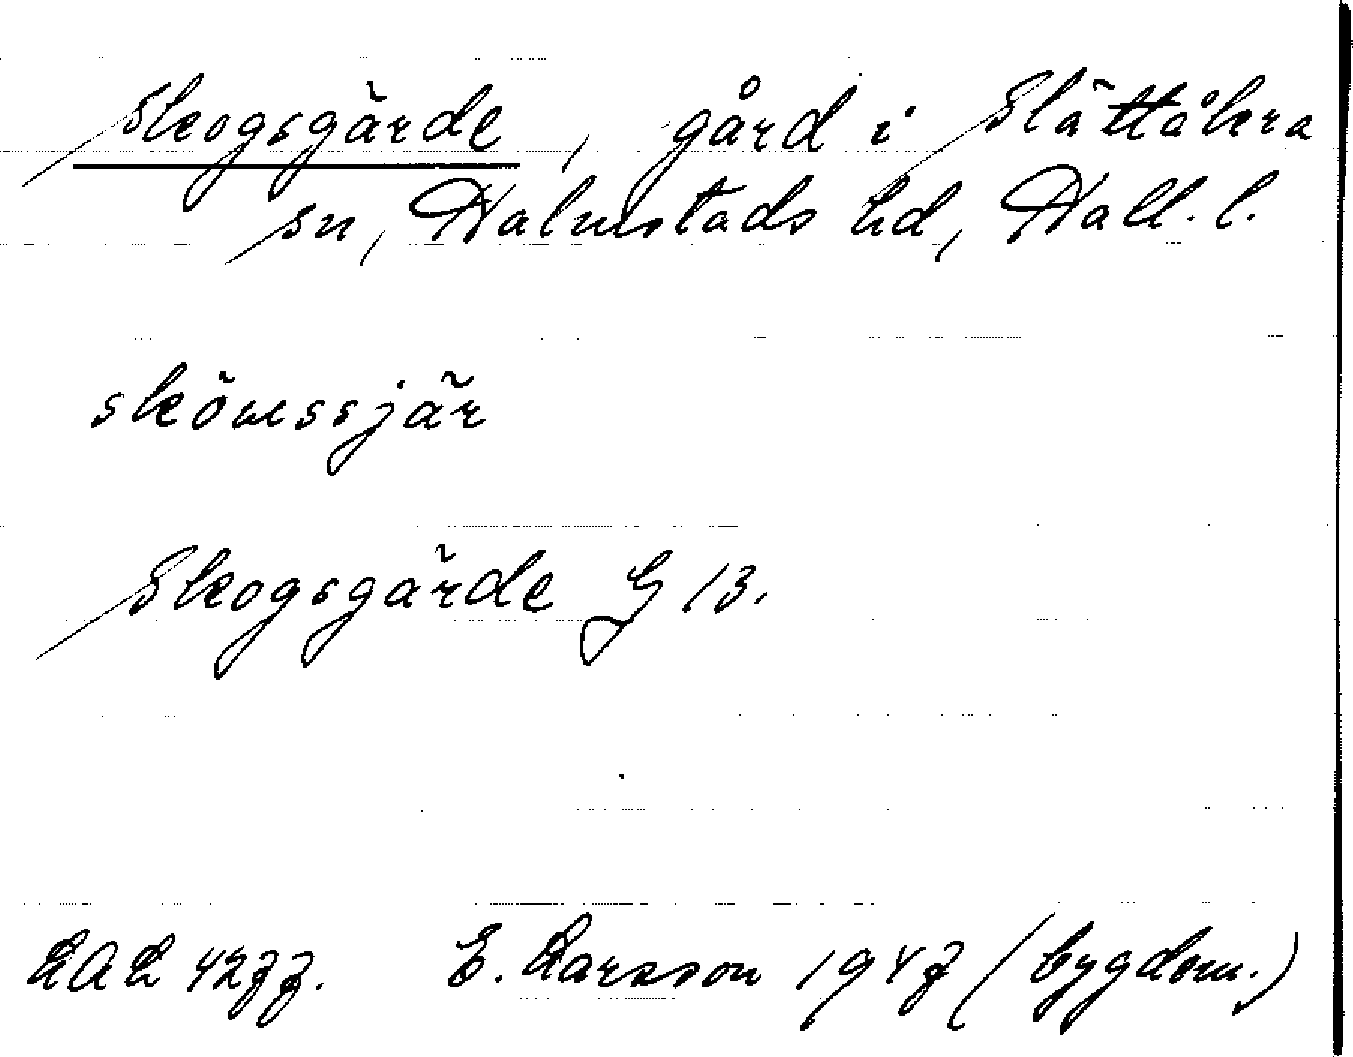 Skogsgärde, gård i Slättåkra
sn, Halmstads hd, Hall. l.
skōwssjär
Skogsgärde G 13.
LAL 4277. E. Larsson 1947 (bygdem.)